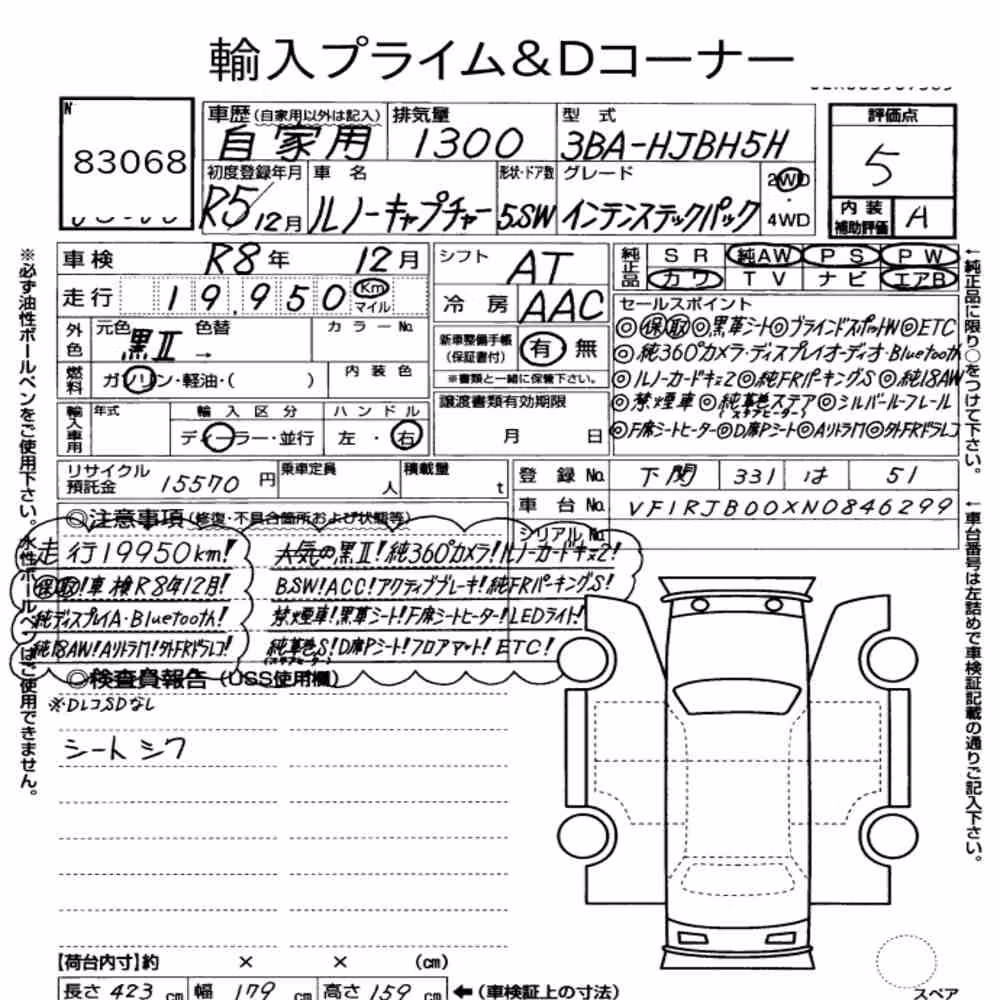 輸入プライム&Dコーナー
N
83068
車歴(自家用以外は記入) 自家用
排気量 1300
型式 3BA-HJBH5H
評価点 5
内装補助評価 A
初度登録年月 R5/12月
車名 ルノーキャプチャー
形状・ドア数 5.SW
グレード インテンステックパック
2WD
4WD
車検 R8年 12月
走行 19,950 Km マイル
外色 元色 黒II → 色替
カラーNo.
燃料 ガソリン・軽油・( )
内装色
輸入車用 年式
輸入区分 ディーラー・並行
ハンドル 左・右
シフト AT
冷房 AAC
新車整備手帳(保証書付) 有 無
※書類と一緒に保管下さい。
譲渡書類有効期限
月 日
純正品 SR 純AW PS PW
カワ TV ナビ エアB
セールスポイント
◎保取◎黒革シート◎ブラインドスポットW◎ETC
◎純360°カメラ・ディスプレイオーディオ・Bluetooth
◎ルノーカードキー×2◎純FRパーキングS◎純18AW
◎禁煙車◎純革巻ステア◎シルバールーフレール
(ステアヒーター)
◎F席シートヒーター◎D席Pシート◎Aリトラミラー◎社外FRドラレコ
リサイクル預託金 15570円
乗車定員 人
積載量 t
登録No. 下関 331 は 51
車台No. VF1RJB00XN0846299
シリアルNo.
◎注意事項(修復・不具合箇所および状態等)
走行19950km! 人気の黒II!純360°カメラ!ルノーカードキー×2!
保取!車検R8年12月! BSW!ACC!アクティブブレーキ!純FRパーキングS!
純ディスプレイA・Bluetooth! 禁煙車!黒革シート!F席シートヒーター!LEDライト!
純18AW!Aリトラミラー!社外FRドラレコ! 純革巻S!D席Pシート!フロアマット!ETC!
(ステアヒーター)
◎検査員報告(USS使用欄)
※DレコSDなし
シートシワ
【荷台内寸】約 × × (cm)
長さ 423 cm 幅 179 cm 高さ 159 cm ←(車検証上の寸法)
スペア
※必ず油性ボールペンをご使用下さい。水性ボールペンはご使用できません。
←純正品に限り○をつけて下さい。
←車台番号は左詰めで車検証記載の通りご記入下さい。